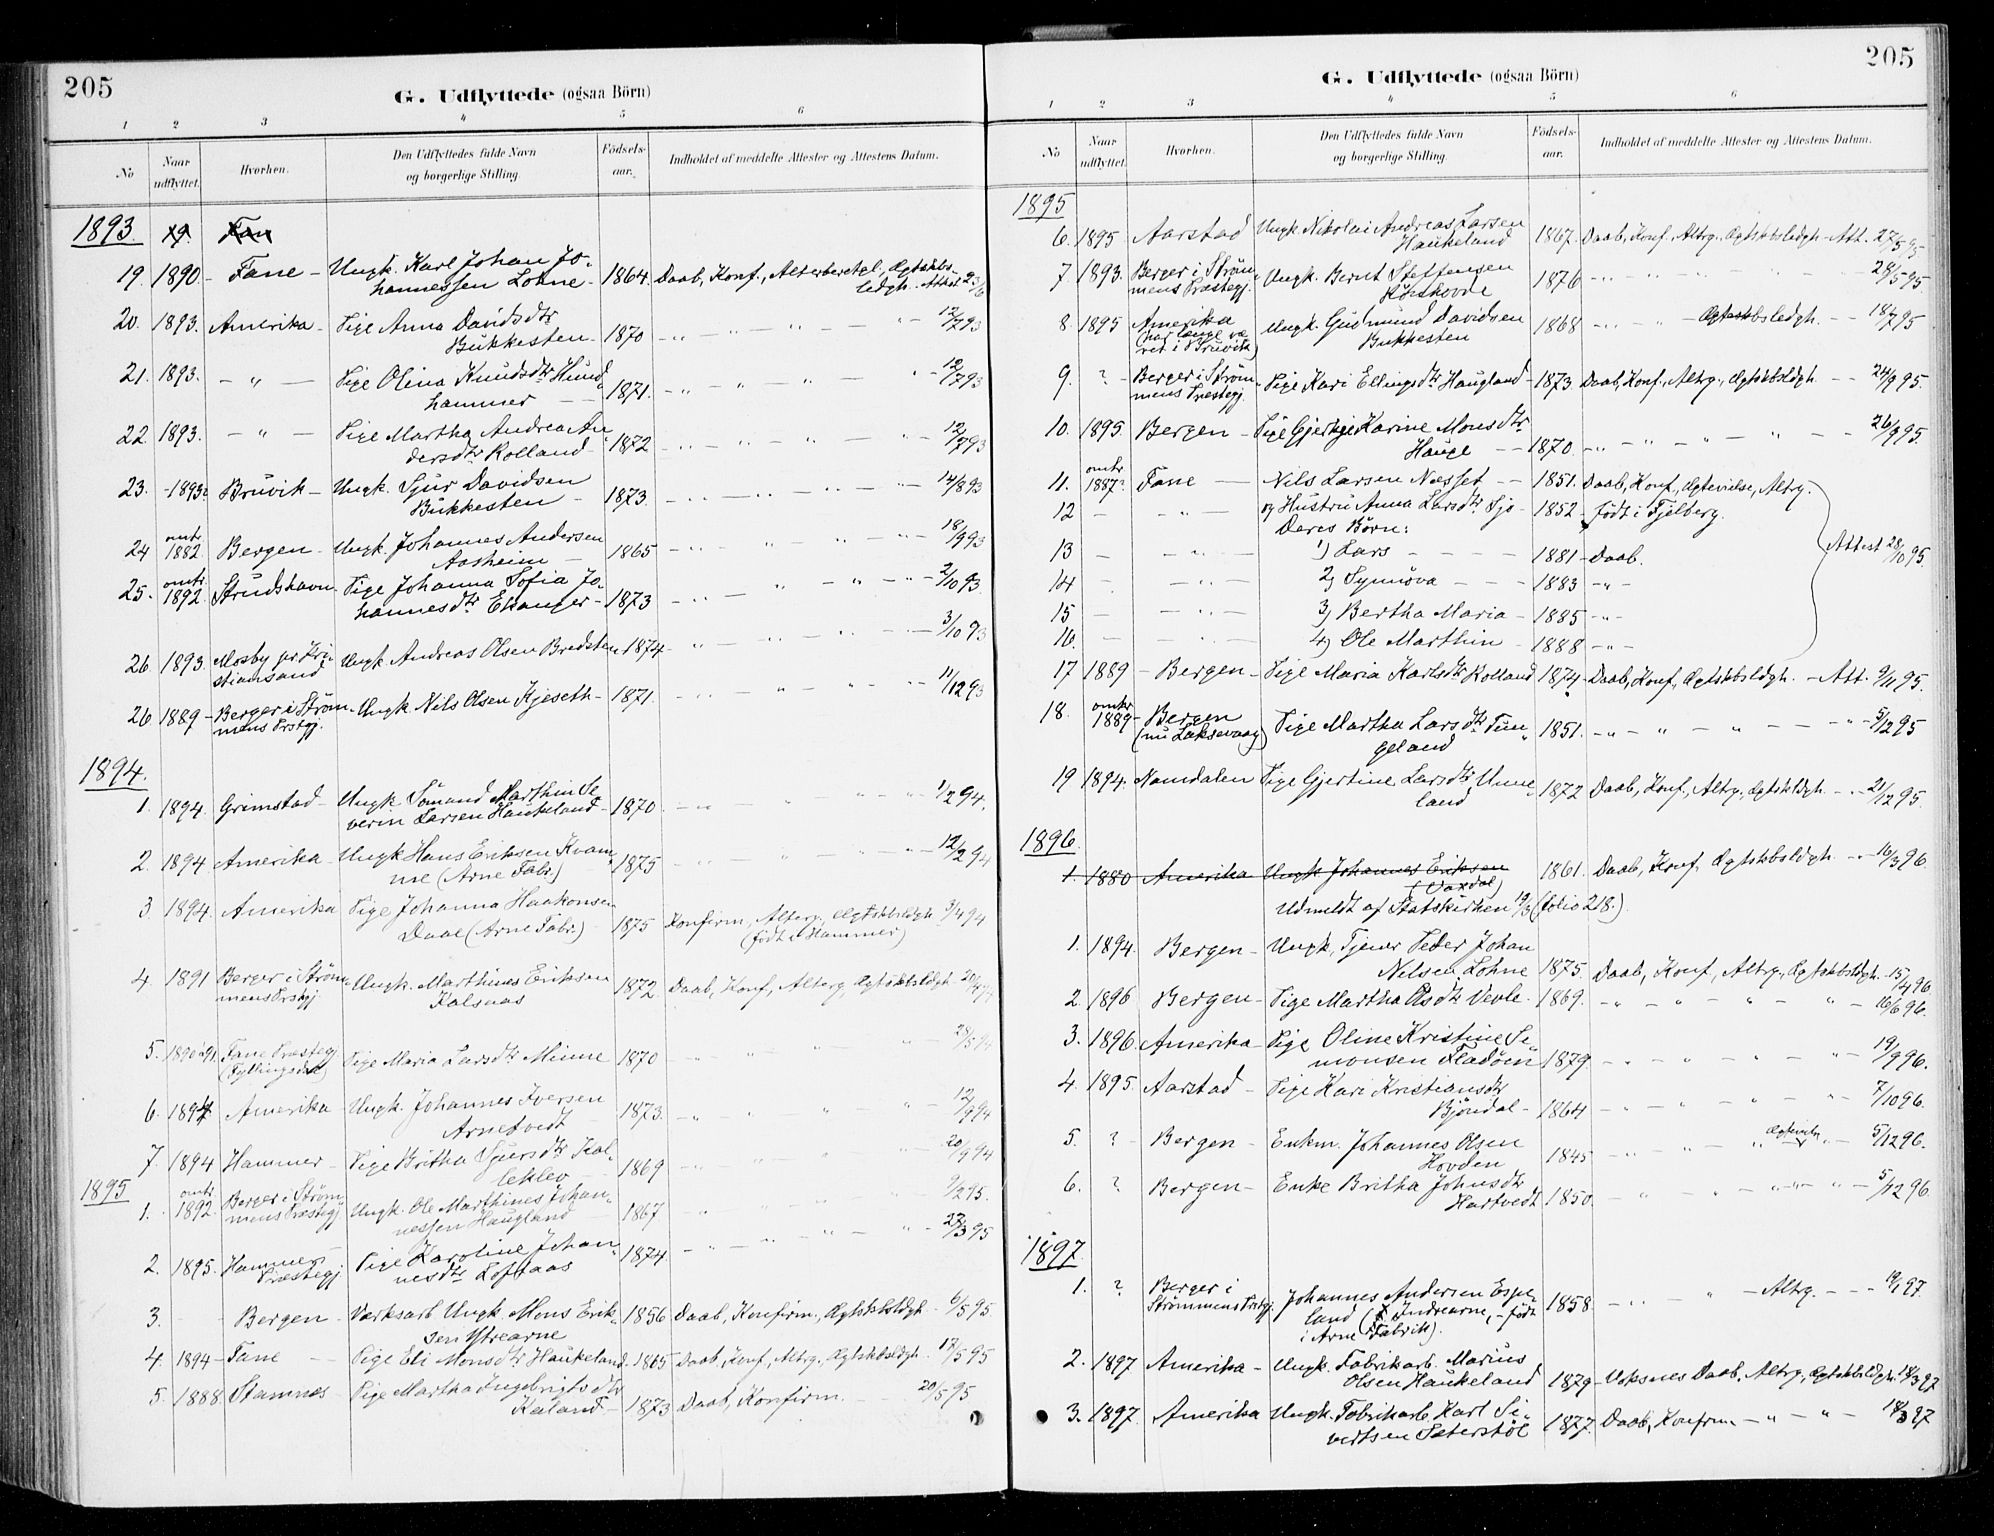 205
G. Udflyttede (ogsaa Börn)
1 2 3 4 5 6
No Naar udflyttet. Hvorhen. Den Udflyttedes fulde Navn og borgerlige Stilling. Fødsels-aar. Indholdet af meddelte Attester og Attestens Datum.
1893. 19. Fan
19. 1890 - Fane - Ungk. Karl Johan Jo-
hannessen Lohne - 1864. Daab, Konf., Alterberetgl., Ægtskbs-
ledgh. Attest 23/6
20. 1893. Amerika - Pige Anna Davidsdtr
Bukkesten - 1870 - " - " " - " - 12/7 93
21. 1893. - " - Pige Olina Knudsdtr Hund-
hammer - - 1871. - " - " " - " - 12/7 93
22. 1893. - " - Pige Martha Andrea An-
dersdtr Rolland - 1872 - " - " - " - " - 12/7 93
23. - 1893. Bruvik - Ungk. Sjur Davidsen
Bukkesten - 1873. - " - " - " - " - 14/8 93
24 omtr 1882. Bergen - Ungk. Johannes Andersen
Aasheim - 1865 - " - " " - " " - 18/9 93
25. omtr. 1892. Strudshavn Pige Johanna Sofia Jo-
hannesdtr Elvanger - 1873 - " - " - " - " - 2/10 93.
26 1893 Mosby pr. Kri-
stiansand Ungk. Andreas Olsen Bredsten 1874 - " - " - " - " - 3/10 93
26 1889 - Berger i Strøm-
mens Prstgj. Ungk. Nils Olsen Kjeseth - 1871. - " - " - " - " - 11/12 93
1894.
1. 1894. Grimstad - Ungk Tømand Marthin Se-
verin Larsen Haukeland - 1870 - " - " " " - " 1/2 94.
2. 1894 Amerika - Ungk Hans Eriksen Kvam-
me (Arne Fabr.) - 1875 - " - " - " - 12/2 94
3. 1894. Amerika Pige Johanna Haakonsen
Daae (Arne Fabr.) 1875 Konfirm, Alterg., Ægtskbsldgh. 3/4 94
(født i Hammer)
4 1891 Berger i Strøm-
mens Prstgj. Ungk. Marthines Eriksen
Kalsaas 1872. Daab, Konf., Alterg., Ægtskbsldgh. 20/4 94
5. 1890 à 91. Fane Præstegj
(Fyllingsdal) Pige Maria Larsdtr Minne 1870 - " - " - " 28/5 94
6. 1894 Amerika - Ungk. Johannes Iversen
Arnetvedt - 1873. - " " " " - 12/9 94
7. 1894 Hammer - Pige Britha Sjursdtr Kal-
leklev - 1869 - " - " " " - 20/9 94
1895
1. omtr 1892. Berger i Strøm-
mens Præstegj Ungk. Ole Marthines Johan-
nessen Haugland - 1867 - " " " " 9/2 95.
2. 1895. Hammers
Præstegj Pige Karoline Johan-
nesdtr Loftaas 1874. - " - " - " - " - 23/3 95
3. - Bergen - Værksarb. Ungk. Mons Erik-
sen Ytrearne 1856 Daab, Konfirm., Ægtskbsldgh. - 6/5 95
4. 1894 - Fane - Pige Eli Monsdtr Haukeland. 1865 Daab, Konf., Altrg., Ægtskbsldgh. - 17/5 95
5. 1888. Stamnes - Pige Martha Ingebrigtsdtr
Kaland - 1873 Daab, Konfirm. - 20/5 95
205
G. Udflyttede (ogsaa Börn)
1 2 3 4 5 6
No Naar udflyttet. Hvorhen. Den Udflyttedes fulde Navn og borgerlige Stilling. Fødsels-aar. Indholdet af meddelte Attester og Attestens Datum.
1895
6. 1895 Aarstad Ungk. Nikolai Andreas Larsen
Haukeland 1867. Daab, Konf., Altrg., Ægtskbsledgh - Att. 27/5 95.
7 1893. Berger i Strøm-
mens Præstegj. Ungk. Bernt Steffensen
1876 - " " " " - " 28/5 95.
8. 1895 Amerika
(har længe væ-
ret i Bruvik) Ungk. Gudmund Davidsen
Bukkesten 1868 - " - " - Ægteskbsledgh. - - 18/7 95
9. ? - Berger i Strøm-
mens Præstegj. Pige Kari Ellingsdtr Haugland - 1873. Daab, Konf., Altrg., Ægtskbsldgh. - - 24/9 95.
10. 1895. Bergen - Pige Gjertje Karine Monsdtr
Hauge - - 1870. - " - " - " - " - " - 26/9 95.
11. omtr 1887? Fane - Nils Larsen Næsset - - 1851. Daab, Konf., Ægtevielse, Altrg.
12 - " - og Hustru Anna Larsdtr Tjo - 1852 - født i Fjelberg.
Deres Børn:
13 - " - 1) Lars - - - - 1881 - Daab. Attest 28/10 95.
14 - " - 2) Synnøva - - - 1883 - " -
15 - " - 3) Bertha Maria - 1885 - " -
16. - " - 4) Ole Marthin - 1888 - " -
17 1889 - Bergen - Pige Maria Karlsdtr Rolland 1874 - Daab, Konf., Ægtskbsldgh. - Att. 9/11 95.
18. omtr 1889 - Bergen
(nu Laksevaag) Pige Martha Larsdtr Tun-
geland 1851. - " - " - " - - " - 5/12 95
19 1894. Namdalen Pige Gjertine Larsdtr Unne-
land 1872 Daab, Konf., Altrg., Ægtskbsldgh. - - 21/12 95.
1896.
1. 1880 Amerika Ungk Johannes Eriksen
(Vaxdal) 1861. Daab, Konf., Ægtskbsldgh. - - 16/3 96.
Udmeldt af Statskirken 19/3 (folio 218.)
1. 1894. Bergen - Ungk. Tjener Peder Johan
Nilsen Lohne 1875. Daab, Konf., Altrg., Ægtskbsldgh. - 15/4 96
2. 1896 Bergen - Pige Martha Olsdtr Vevle - 1869. - " - " - " - " - 16/6 96.
3. 1896. Amerika - Pige Oline Kristine Si-
monsen Fladøen 1879 - " - " - " - " - 19/9 96.
4. 1895. Aarstad - Pige Kari Kristiansdtr
Bjøndal - 1864 - " - " - " - " - 7/10 96.
5. ? - Bergen - Enkm. Johannes Olsen
Hovden 1845 - " " - " Ægtevidn. " - 5/12 96.
6. ? Bergen - Enke Britha Johnsdtr
Hartvedt 1850. - " - " - " " - " - 5/12 96.
1897.
1. ? Berger i
Strømmens Prstgj. Johannes Andersen Espe-
land (i Indrearne, - født
i Arne Fabrik). 1858. - " - " - Altrg. - - - 19/1 97.
2. 1897 Amerika - Ungk. Fabrikarb. Marius
Olsen Haukeland 1879 - Voksnes Daab, Altrg., Ægtskbsldgh. 18/3 97
3. 1897. Amerika Ungk. Fabrikarb. Karl Si-
vertsen Seterstøl 1877. Daab, Konfrm. - " - " - 18/3 97